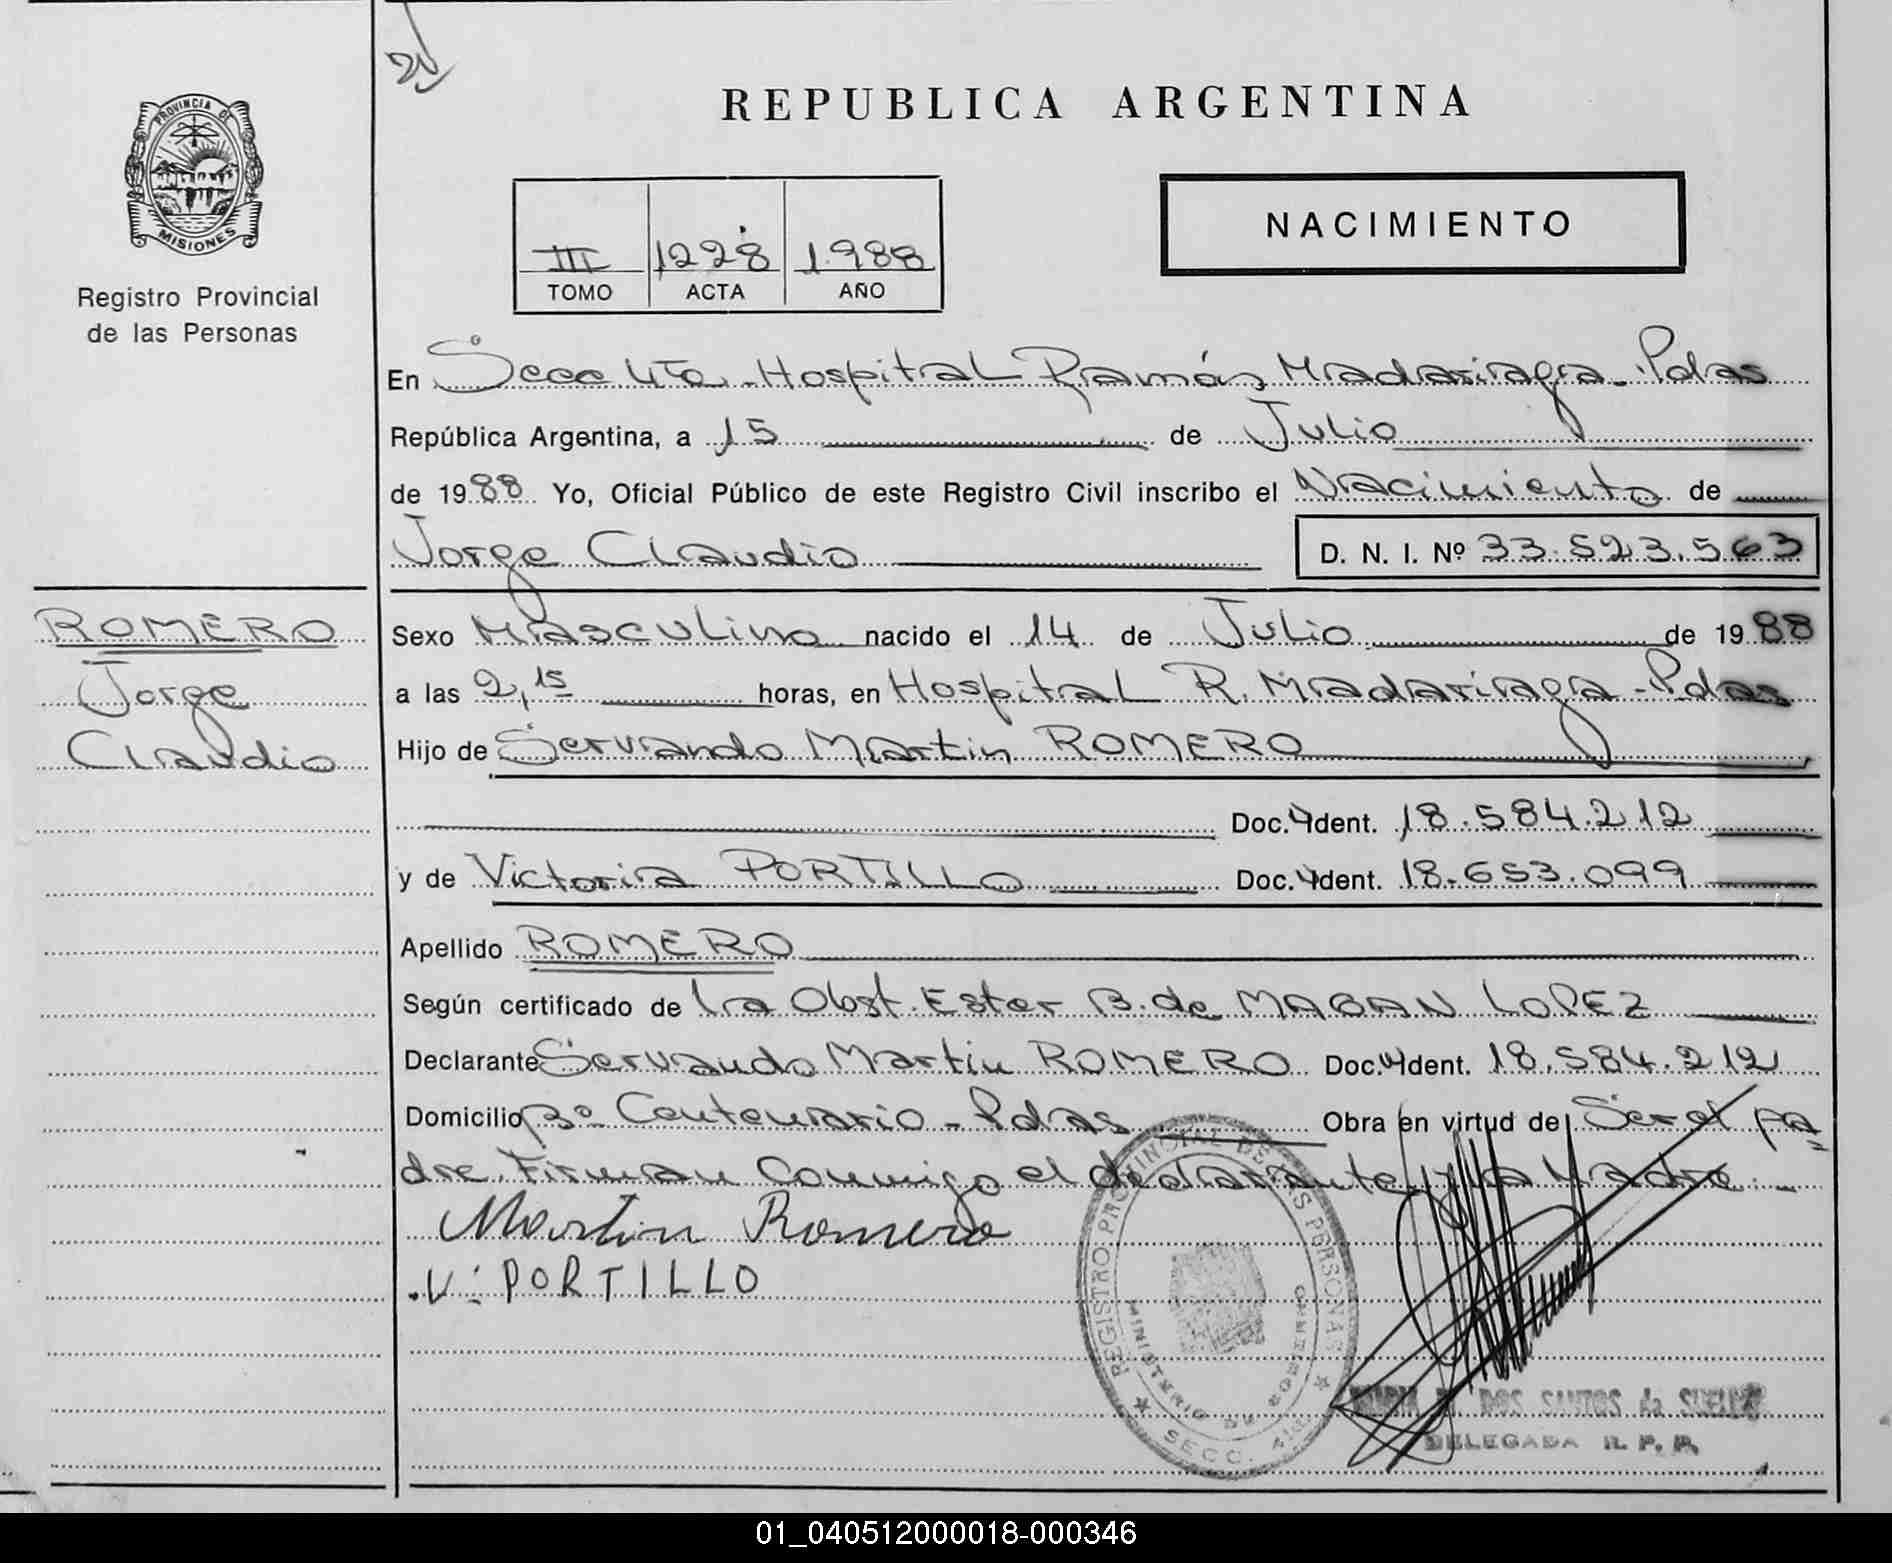 PROVINCIA DE
MISIONES
Registro Provincial
de las Personas
ROMERO
Jorge
Claudio
REPUBLICA ARGENTINA
III 1228 1.988
TOMO ACTA AÑO
NACIMIENTO
En Secc 4ta - Hospital Ramón Madariaga - Pdas
República Argentina, a 15 de Julio
de 1988 Yo, Oficial Público de este Registro Civil inscribo el Nacimiento de
Jorge Claudio D. N. I. Nº 33.523.563
Sexo Masculino nacido el 14 de Julio de 1988
a las 2,15 horas, en Hospital R. Madariaga - Pdas
Hijo de Servando Martin ROMERO
Doc. Ident. 18.584.212
y de Victoria PORTILLO Doc. Ident. 18.653.099
Apellido ROMERO
Según certificado de la Obst. Ester B. de MABAN LOPEZ
Declarante Servando Martin ROMERO Doc. Ident. 18.584.212
Domicilio Bº Centenario - Pdas Obra en virtud de Ser el pa=
dre. Firman Conmigo el declarante y la Madre -
Martin Romero
V. PORTILLO
REGISTRO PROVINCIAL DE LAS PERSONAS
MINISTERIO DE GOBIERNO
SECC. 4ta
DOS SANTOS de
DELEGADA R. P. P.
01_040512000018-000346